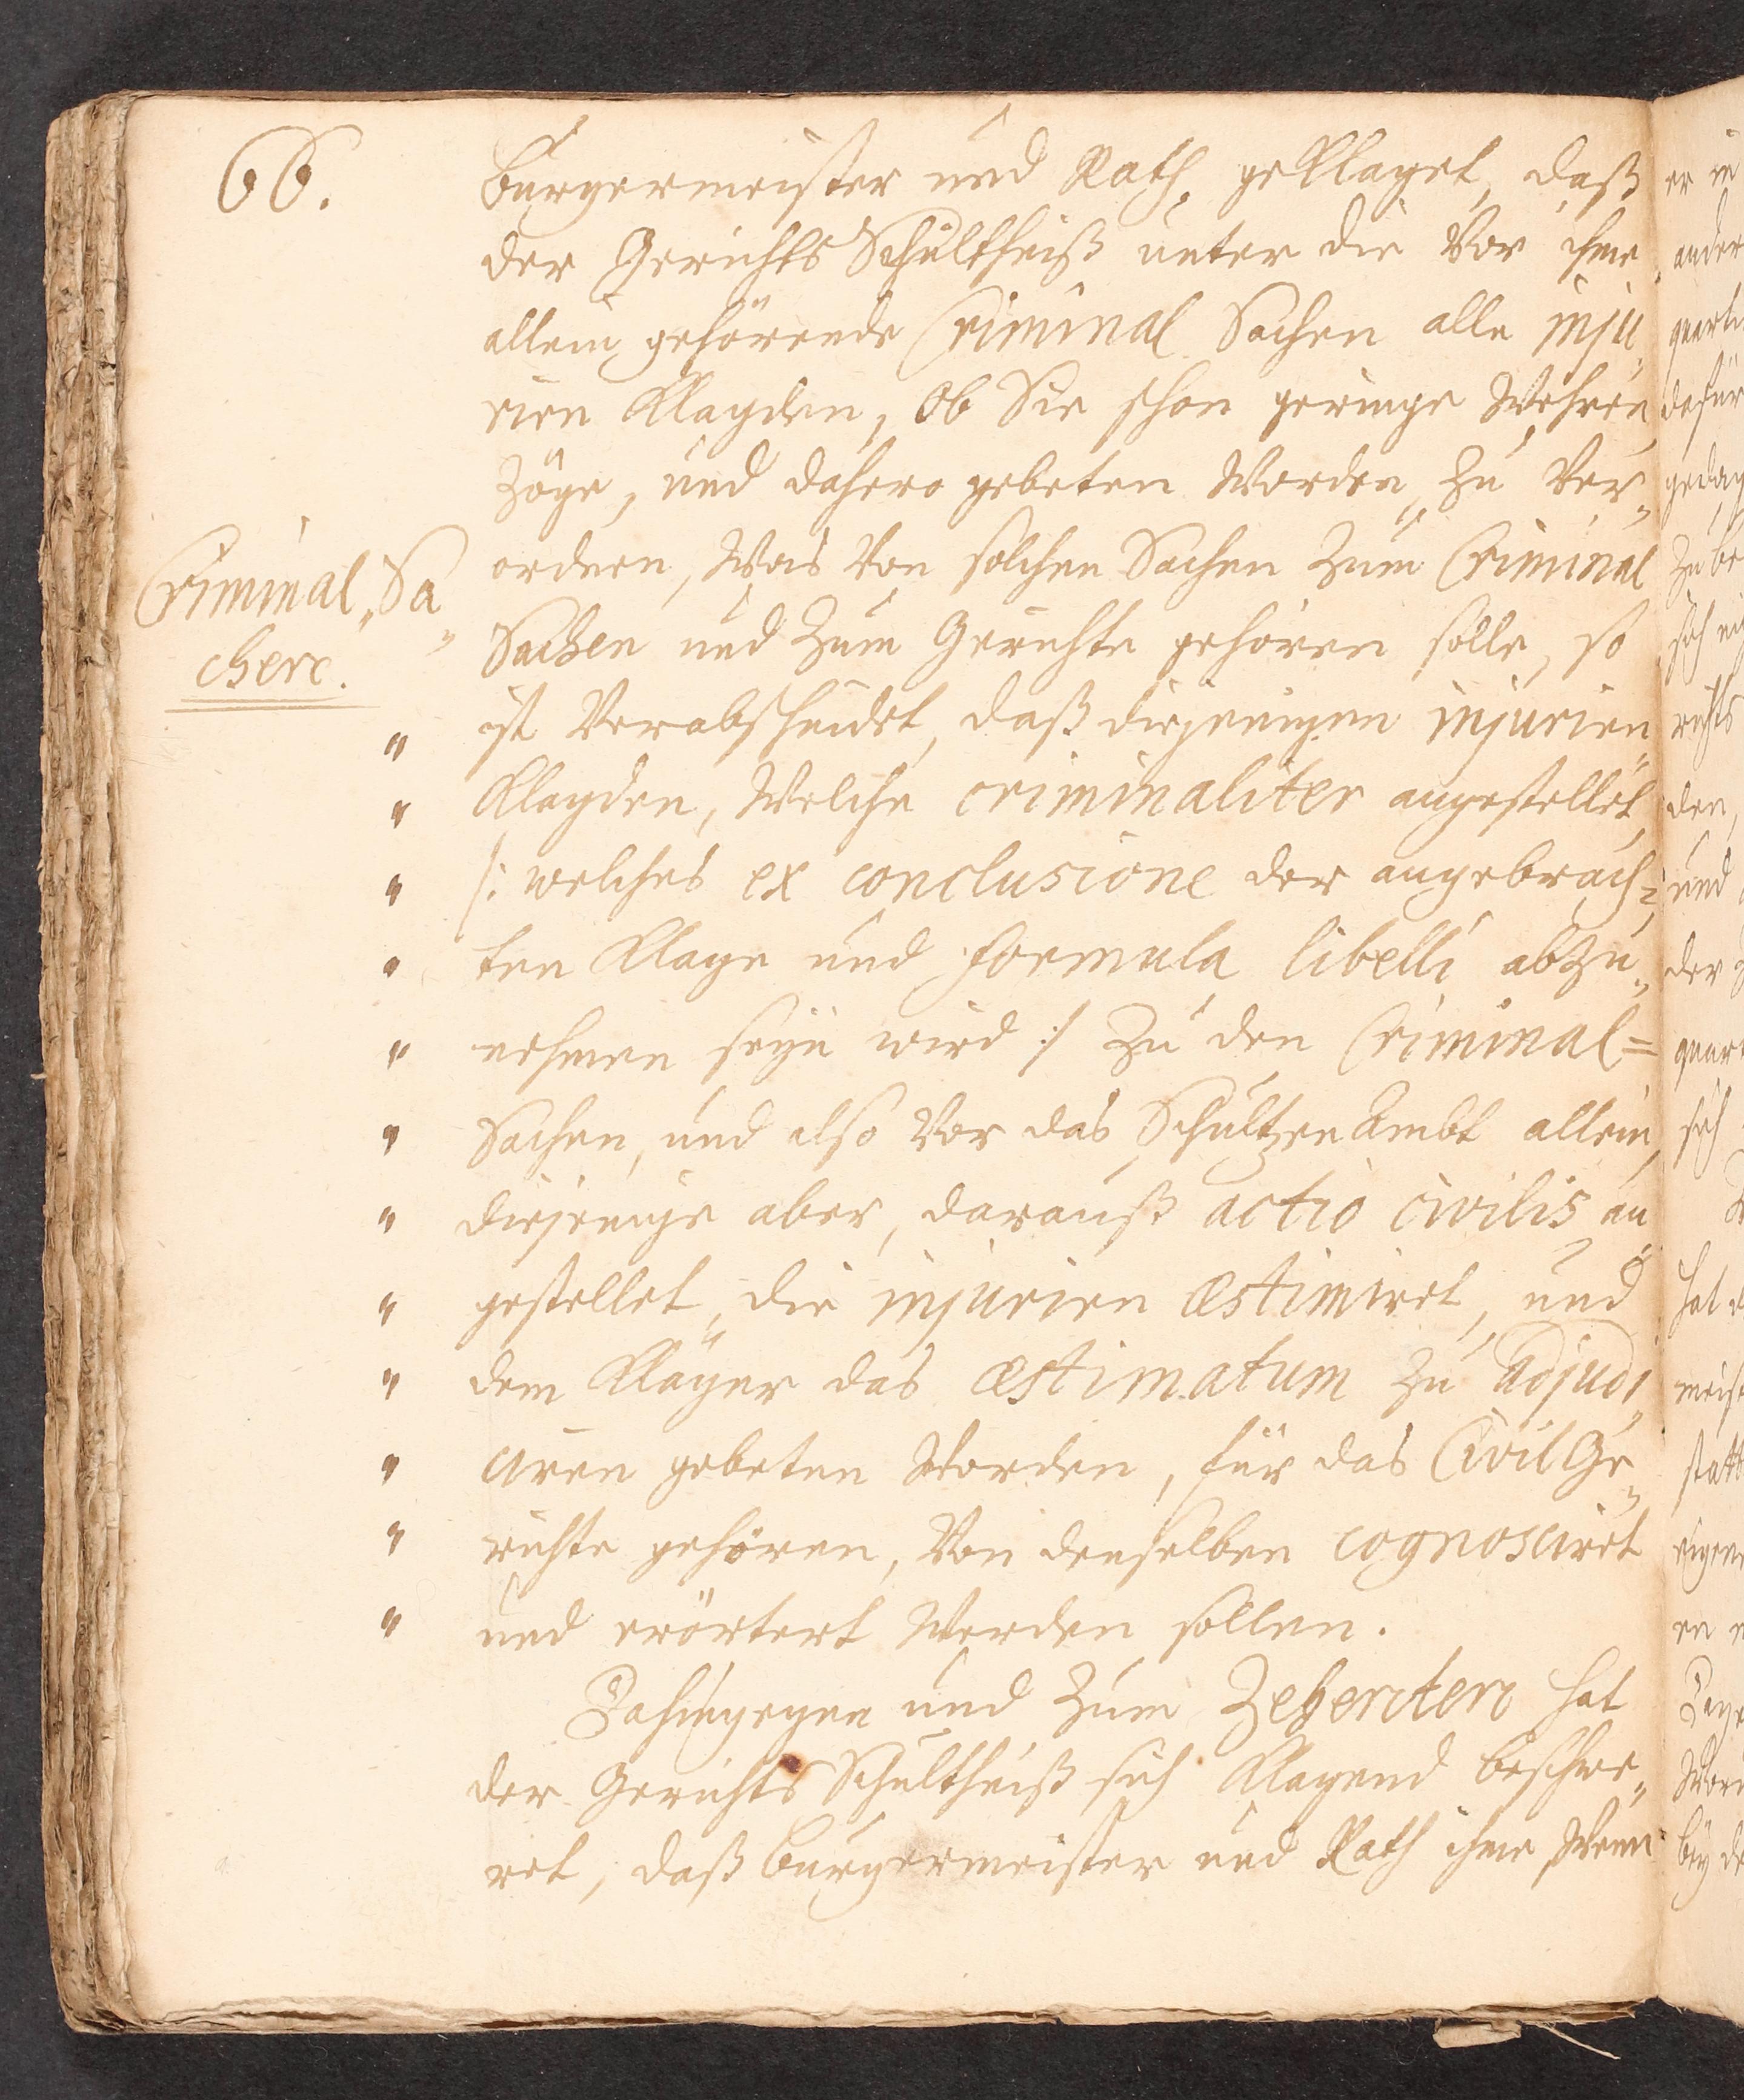 66.
Burgermeister und Rath geklaget, daß
der Gerichts Schultheiß unter die Vor ihme
allein gehörende Criminal Sachen alle inju„
rien Klagden, Ob Sie schon geringe Wehren
Zöge, und dahero gebeten Worden, zu Ver„
ordern, Was Von solchen Sachen zum Criminal
Criminal„Sa„
chen.
Sachen und zum Gerichte gehören solle, so
" ist Verabscheidet, daß diejenigen injurien„
" Klagden, Welche criminaliter angestellet,
" /: welches ex conclusione der angebrach=
" ten Klage und formula libelli abzu„
" nehmen seyn wird :/ Zu den Criminal=
" Sachen, und also Vor das Schultzen Ambt allein,
" diejenige aber, darauß actio civilis an„
" gestellet, die injurien æstimiret, und
" dem Kläger das æstimatum zu adjudi„
" ciren gebeten Worden, für das Civil Ge„
" richte gehören, Von denselben cognosciret
" und erörtert Werden sollen.
Dahingegen und Zum Zehenten hat
der Gerichts Schultheiß sich Klagend beschwe„
ret, daß Burgermeister und Rath ihme, Wenn